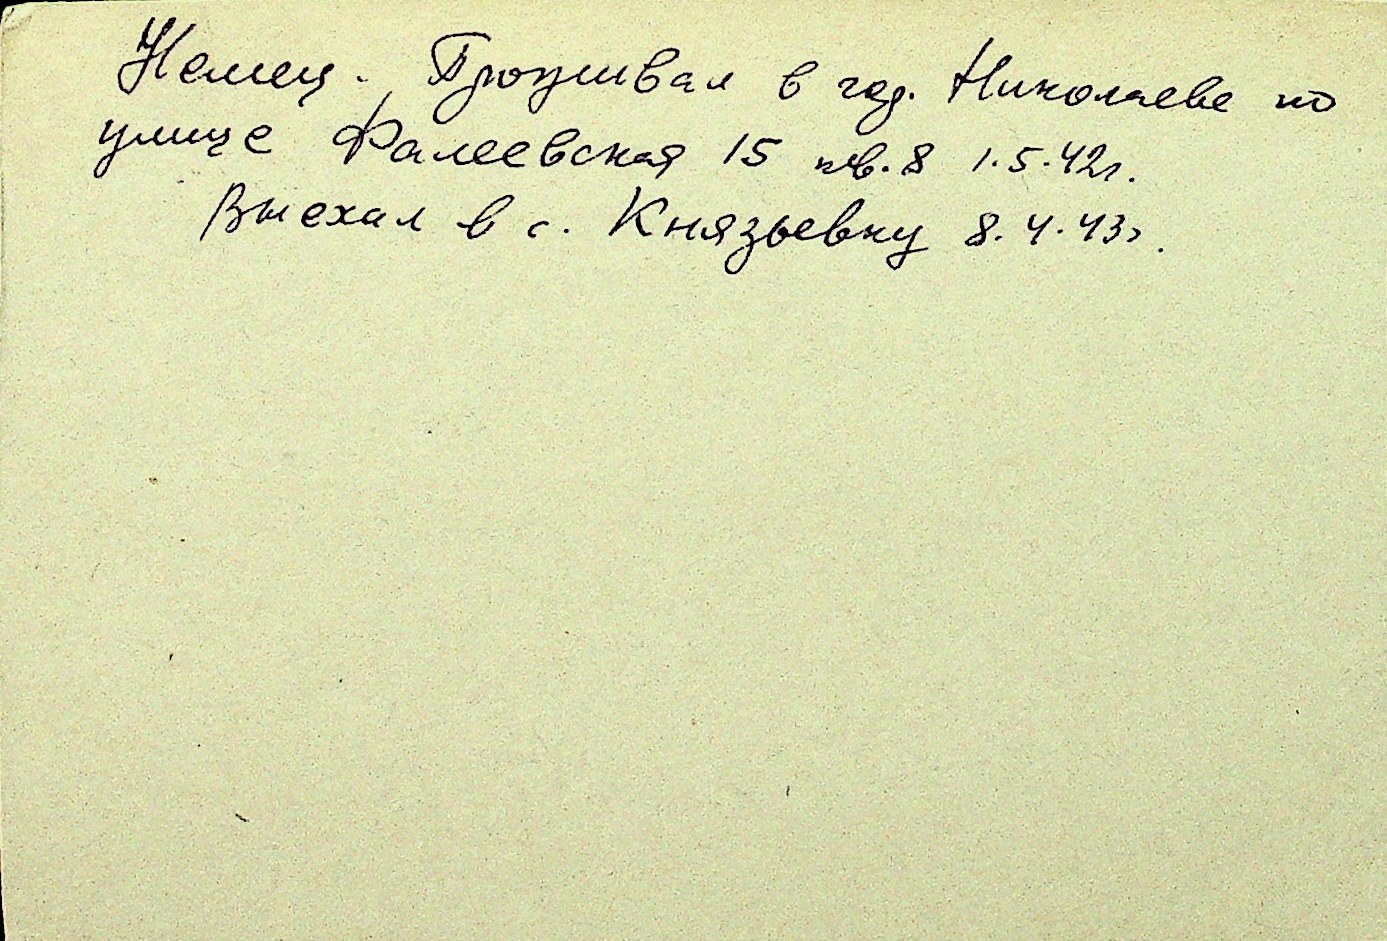 Немец. Проживал в гор. Николаеве по
улице Фалеевская 15 кв. 8 1.5.42г.
Выехал в с. Князьевку 8.4.43г.